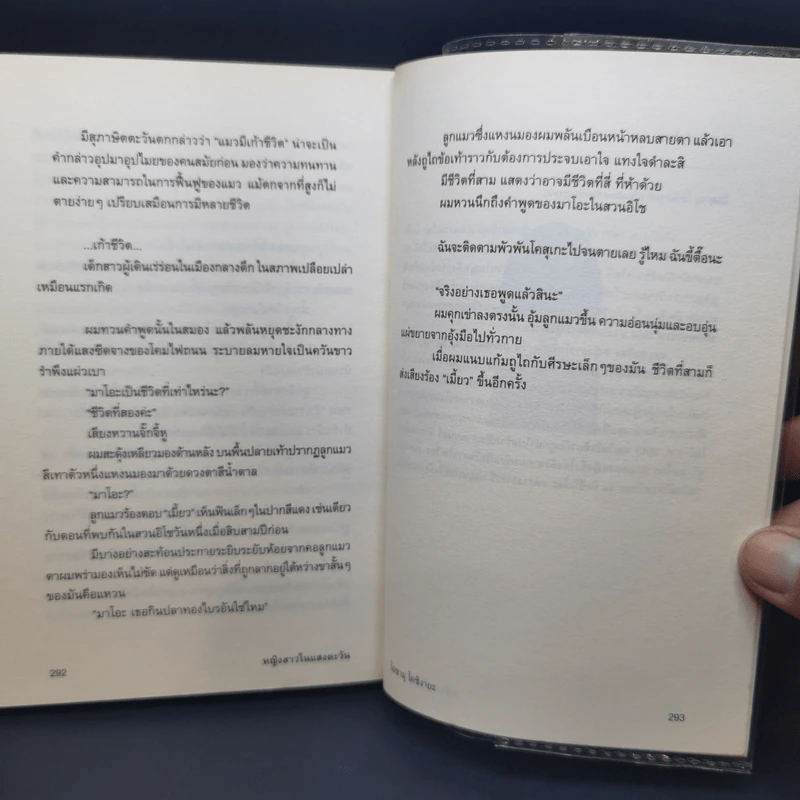 มีสุภาษิตตะวันตกกล่าวว่า "แมวมีเก้าชีวิต" น่าจะเป็น
คำกล่าวอุปมาอุปไมยของคนสมัยก่อน มองว่าความทนทาน
และความสามารถในการฟื้นฟูของแมว แม้ตกจากที่สูงก็ไม่
ตายง่ายๆ เปรียบเสมือนการมีหลายชีวิต
...เก้าชีวิต...
เด็กสาวผู้เดินเร่ร่อนในเมืองกลางดึก ในสภาพเปลือยเปล่า
เหมือนแรกเกิด
ผมทวนคำพูดนั้นในสมอง แล้วพลันหยุดชะงักกลางทาง
ภายใต้แสงซีดจางของโคมไฟถนน ระบายลมหายใจเป็นควันขาว
รำพึงแผ่วเบา
"มาโอะเป็นชีวิตที่เท่าไหร่นะ?"
"ชีวิตที่สองค่ะ"
เสียงหวานจั๊กจี้หู
ผมสะดุ้งเหลียวมองด้านหลัง บนพื้นปลายเท้าปรากฏลูกแมว
สีเทาตัวหนึ่งแหงนมองมาด้วยดวงตาสีน้ำตาล
"มาโอะ?"
ลูกแมวร้องตอบ "เมี้ยว" เห็นฟันเล็กๆ ในปากสีแดง เช่นเดียว
กับตอนที่พบกันในสวนอิโชวันหนึ่งเมื่อสิบสามปีก่อน
มีบางอย่างสะท้อนประกายระยิบระยับห้อยจากคอลูกแมว
ตาผมพร่ามองเห็นไม่ชัด แต่ดูเหมือนว่าสิ่งที่ถูกลากอยู่ใต้หว่างขาสั้นๆ
ของมันคือแหวน
"มาโอะ เธอกินปลาทองไบรอันใช่ไหม"
292
หญิงสาวในแสงตะวัน
ลูกแมวซึ่งแหงนมองผมพลันเบือนหน้าหลบสายตา แล้วเอา
หลังถูไถข้อเท้าราวกับต้องการประจบเอาใจ แทงใจดำละสิ
มีชีวิตที่สาม แสดงว่าอาจมีชีวิตที่สี่ ที่ห้าด้วย
ผมหวนนึกถึงคำพูดของมาโอะในสวนอิโช
ฉันจะติดตามพัวพันโคสุเกะไปจนตายเลย รู้ไหม ฉันขี้ตื๊อนะ
"จริงอย่างเธอพูดแล้วสินะ"
ผมคุกเข่าลงตรงนั้น อุ้มลูกแมวขึ้น ความอ่อนนุ่มและอบอุ่น
แผ่ขยายจากอุ้งมือไปทั่วกาย
เมื่อผมแนบแก้มถูไถกับศีรษะเล็กๆ ของมัน ชีวิตที่สามก็
ส่งเสียงร้อง "เมี้ยว" ขึ้นอีกครั้ง
โคชิงายะ
293